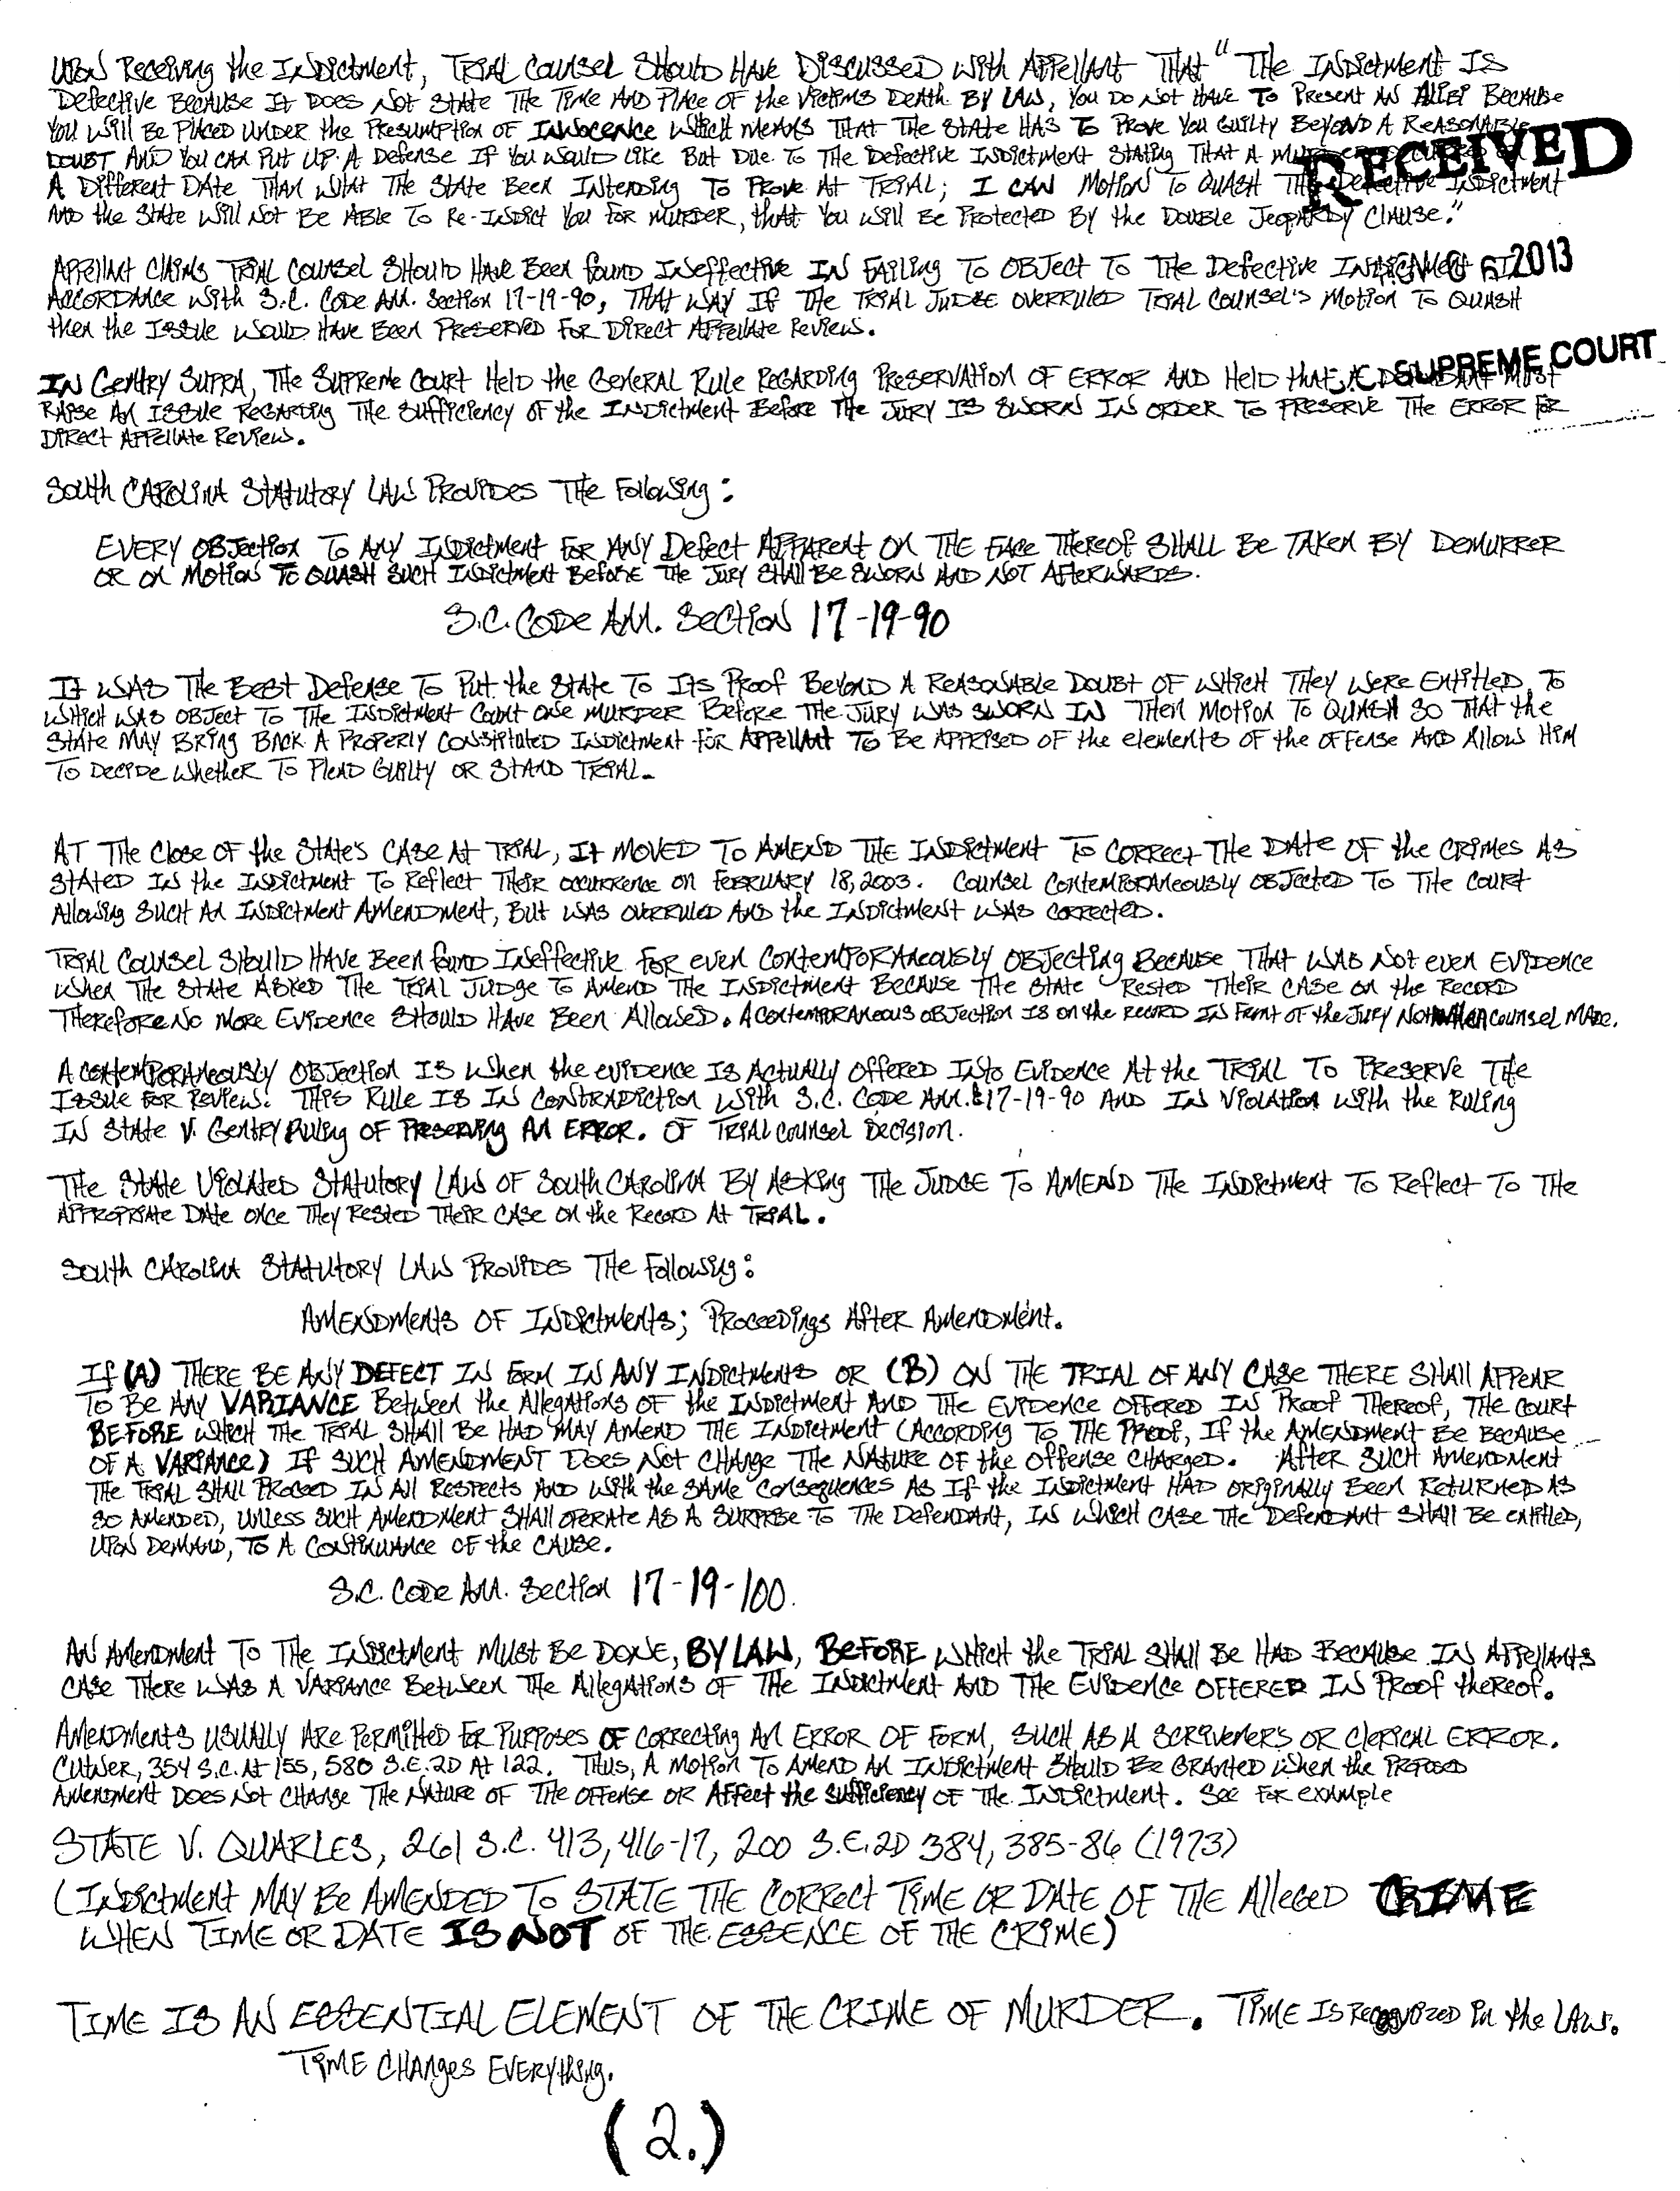 UPON Receiving the INDictment, TRIAL COUNSEL SHOULD HAVE DISCUSSED WITH APPELLANT THAT "THE INDICTMENT IS
DEFECTIVE BECAUSE IT DOES NOT STATE THE TIME AND PLACE OF the VICTIMS DEATH. BY LAW, YOU DO NOT HAVE TO PRESENT AN ALIBI BECAUSE
YOU WILL BE PLACED UNDER the PRESUMPTION OF INNOCENCE WHICH MEANS THAT THE STATE HAS TO PROVE YOU GUILTY BEYOND A REASONABLE
DOUBT AND YOU CAN PUT UP A DEFENSE IF YOU WOULD LIKE BUT DUE TO THE DEFECTIVE INDICTMENT STATING THAT A
RECEIVED
A DIFFERENT DATE THAN WHAT THE STATE BEEN INTENDING TO PROVE AT TRIAL; I CAN MOTION TO QUASH THE DEFECTIVE INDICTMENT
AND the STATE WILL NOT BE ABLE TO RE-INDICT YOU FOR MURDER, that YOU WILL BE PROTECTED BY the DOUBLE JEOPARDY CLAUSE."
APPELLANT CLAIMS TRIAL COUNSEL SHOULD HAVE BEEN found INEFFECTIVE IN FAILING TO OBJECT TO THE DEFECTIVE
2013
ACCORDANCE WITH S.C. CODE ANN. SECTION 17-19-90, THAT WAY IF THE TRIAL JUDGE OVERRULED TRIAL COUNSEL'S MOTION TO QUASH
then the ISSUE WOULD HAVE BEEN PRESERVED FOR DIRECT APPELLATE REVIEW.
SUPREME COURT
IN GENTRY SUPRA, THE SUPREME COURT HELD the GENERAL RULE REGARDING PRESERVATION OF ERROR AND HELD that A MUST
RAISE AN ISSUE REGARDING THE SUFFICIENCY OF the INDICTMENT BEFORE THE JURY IS SWORN IN ORDER TO PRESERVE THE ERROR FOR
DIRECT APPELLATE REVIEW.
SOUTH CAROLINA STATUTORY LAW PROVIDES THE FOLLOWING:
EVERY OBJECTION TO ANY INDICTMENT FOR ANY DEFECT APPARENT ON THE FACE THEREOF SHALL BE TAKEN BY DEMURRER
OR ON MOTION TO QUASH SUCH INDICTMENT BEFORE THE JURY SHALL BE SWORN AND NOT AFTERWARDS.
S.C. CODE ANN. SECTION 17-19-90
IT WAS THE BEST DEFENSE TO PUT the STATE TO ITS PROOF BEYOND A REASONABLE DOUBT OF WHICH THEY WERE ENTITLED TO
WHICH WAS OBJECT TO THE INDICTMENT COUNT ONE MURDER BEFORE THE JURY WAS SWORN IN THEN MOTION TO QUASH SO THAT the
STATE MAY BRING BACK A PROPERLY CONSTITUTED INDICTMENT for APPELLANT TO BE APPRISED OF the elements OF the OFFENSE AND ALLOW HIM
TO DECIDE WHETHER TO PLEAD GUILTY OR STAND TRIAL.
AT THE CLOSE OF the STATE'S CASE AT TRIAL, IT MOVED TO AMEND THE INDICTMENT TO CORRECT THE DATE OF the CRIMES AS
STATED IN the INDICTMENT TO REFLECT THEIR OCCURRENCE ON FEBRUARY 18, 2003. COUNSEL CONTEMPORANEOUSLY OBJECTED TO THE COURT
ALLOWING SUCH AN INDICTMENT AMENDMENT, BUT WAS OVERRULED AND the INDICTMENT WAS CORRECTED.
TRIAL COUNSEL SHOULD HAVE BEEN found INEFFECTIVE FOR EVEN CONTEMPORANEOUSLY OBJECTING BECAUSE THAT WAS NOT EVEN EVIDENCE
WHEN THE STATE ASKED THE TRIAL JUDGE TO AMEND THE INDICTMENT BECAUSE THE STATE RESTED THEIR CASE ON the RECORD
THEREFORE NO MORE EVIDENCE SHOULD HAVE BEEN ALLOWED. A CONTEMPORANEOUS OBJECTION IS ON the RECORD IN FRONT OF the JURY NOT WHEN COUNSEL MADE.
A CONTEMPORANEOUSLY OBJECTION IS WHEN the EVIDENCE IS ACTUALLY OFFERED INTO EVIDENCE AT the TRIAL TO PRESERVE THE
ISSUE FOR REVIEW. THIS RULE IS IN CONTRADICTION WITH S.C. CODE ANN. § 17-19-90 AND IN VIOLATION WITH the RULING
IN STATE V. GENTRY RULING OF PRESERVING AN ERROR. OF TRIAL COUNSEL DECISION.
THE STATE VIOLATED STATUTORY LAW OF SOUTH CAROLINA BY ASKING THE JUDGE TO AMEND THE INDICTMENT TO REFLECT TO THE
APPROPRIATE DATE ONCE THEY RESTED THEIR CASE ON the RECORD AT TRIAL.
SOUTH CAROLINA STATUTORY LAW PROVIDES THE FOLLOWING:
AMENDMENTS OF INDICTMENTS; PROCEEDINGS AFTER AMENDMENT.
If (A) THERE BE ANY DEFECT IN FORM IN ANY INDICTMENTS OR (B) ON THE TRIAL OF ANY CASE THERE SHALL APPEAR
TO BE ANY VARIANCE BETWEEN the ALLEGATIONS OF the INDICTMENT AND THE EVIDENCE OFFERED IN PROOF THEREOF, THE COURT
BEFORE WHICH THE TRIAL SHALL BE HAD MAY AMEND THE INDICTMENT (ACCORDING TO THE PROOF, IF the AMENDMENT BE BECAUSE
OF A VARIANCE) IF SUCH AMENDMENT DOES NOT CHANGE THE NATURE OF the OFFENSE CHARGED. AFTER SUCH AMENDMENT
THE TRIAL SHALL PROCEED IN ALL RESPECTS AND WITH the SAME CONSEQUENCES AS IF the INDICTMENT HAD ORIGINALLY BEEN RETURNED AS
SO AMENDED, UNLESS SUCH AMENDMENT SHALL OPERATE AS A SURPRISE TO THE DEFENDANT, IN WHICH CASE THE DEFENDANT SHALL BE ENTITLED,
UPON DEMAND, TO A CONTINUANCE OF the CAUSE.
S.C. CODE ANN. SECTION 17-19-100.
AN AMENDMENT TO THE INDICTMENT MUST BE DONE, BY LAW, BEFORE WHICH the TRIAL SHALL BE HAD BECAUSE IN APPELLANTS
CASE THERE WAS A VARIANCE BETWEEN THE ALLEGATIONS OF THE INDICTMENT AND THE EVIDENCE OFFERED IN PROOF thereof.
AMENDMENTS USUALLY ARE PERMITTED FOR PURPOSES OF CORRECTING AN ERROR OF FORM, SUCH AS A SCRIVENERS OR CLERICAL ERROR.
CUTNER, 354 S.C. AT 155, 580 S.E.2D AT 122. THUS, A MOTION TO AMEND AN INDICTMENT SHOULD BE GRANTED WHEN the PROPOSED
AMENDMENT DOES NOT CHANGE THE NATURE OF THE OFFENSE OR AFFECT the SUFFICIENCY OF THE INDICTMENT. SEE FOR EXAMPLE
STATE V. QUARLES, 261 S.C. 413, 416-17, 200 S.E.2D 384, 385-86 (1973)
(INDICTMENT MAY BE AMENDED TO STATE THE CORRECT TIME OR DATE OF THE ALLEGED CRIME
WHEN TIME OR DATE IS NOT OF THE ESSENCE OF THE CRIME)
TIME IS AN ESSENTIAL ELEMENT OF THE CRIME OF MURDER. TIME IS RECOGNIZED IN the LAW.
TIME CHANGES EVERYTHING.
(2.)